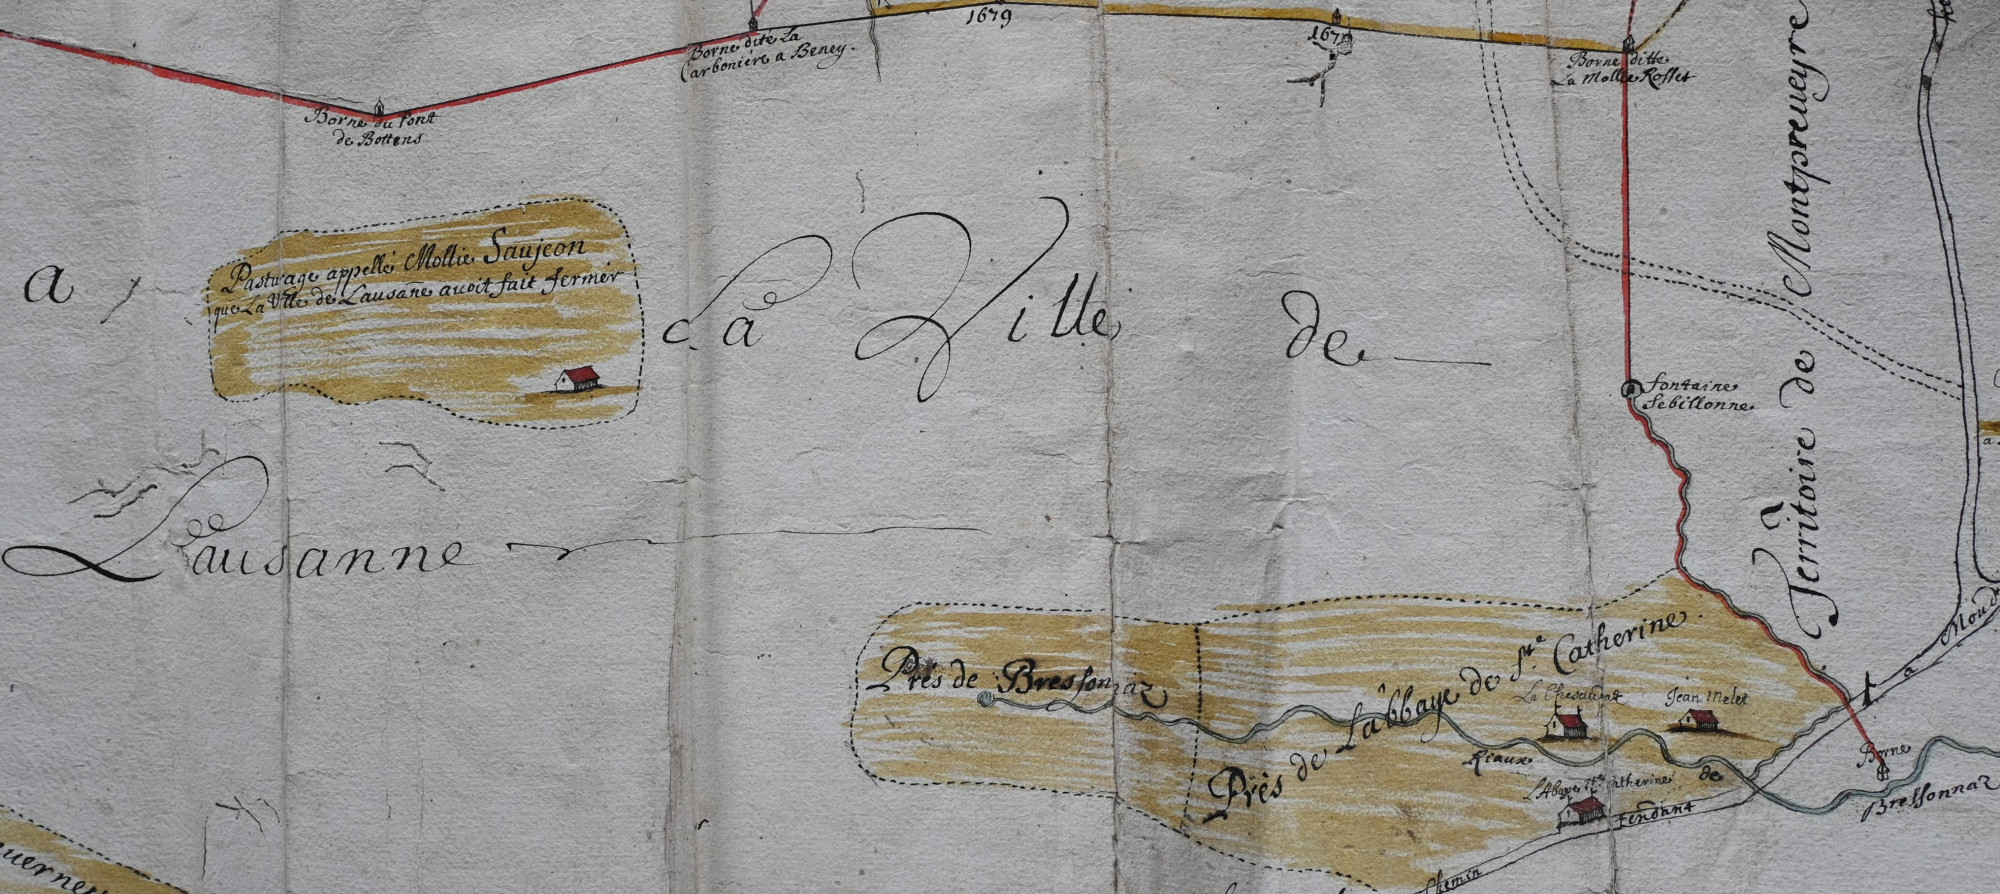 1679
167
Borne dite La
Carboniere a Beney.
Borne ditte
La Mollie Rosset
Borne du Pont
de Bottens
Territoire de Montpreueyre
Pasturage appellé Mollie Saujeon
que La Ville de Lausañe auoit fait fermer
a La Ville de
Lausanne
fontaine
Sebillonne
Prés de Bressonnaz
Prés de L'abbaye de Ste. Catherine.
Jean Melet
Riaux de Bressonnaz
Borne
Chemin tendant a Moud